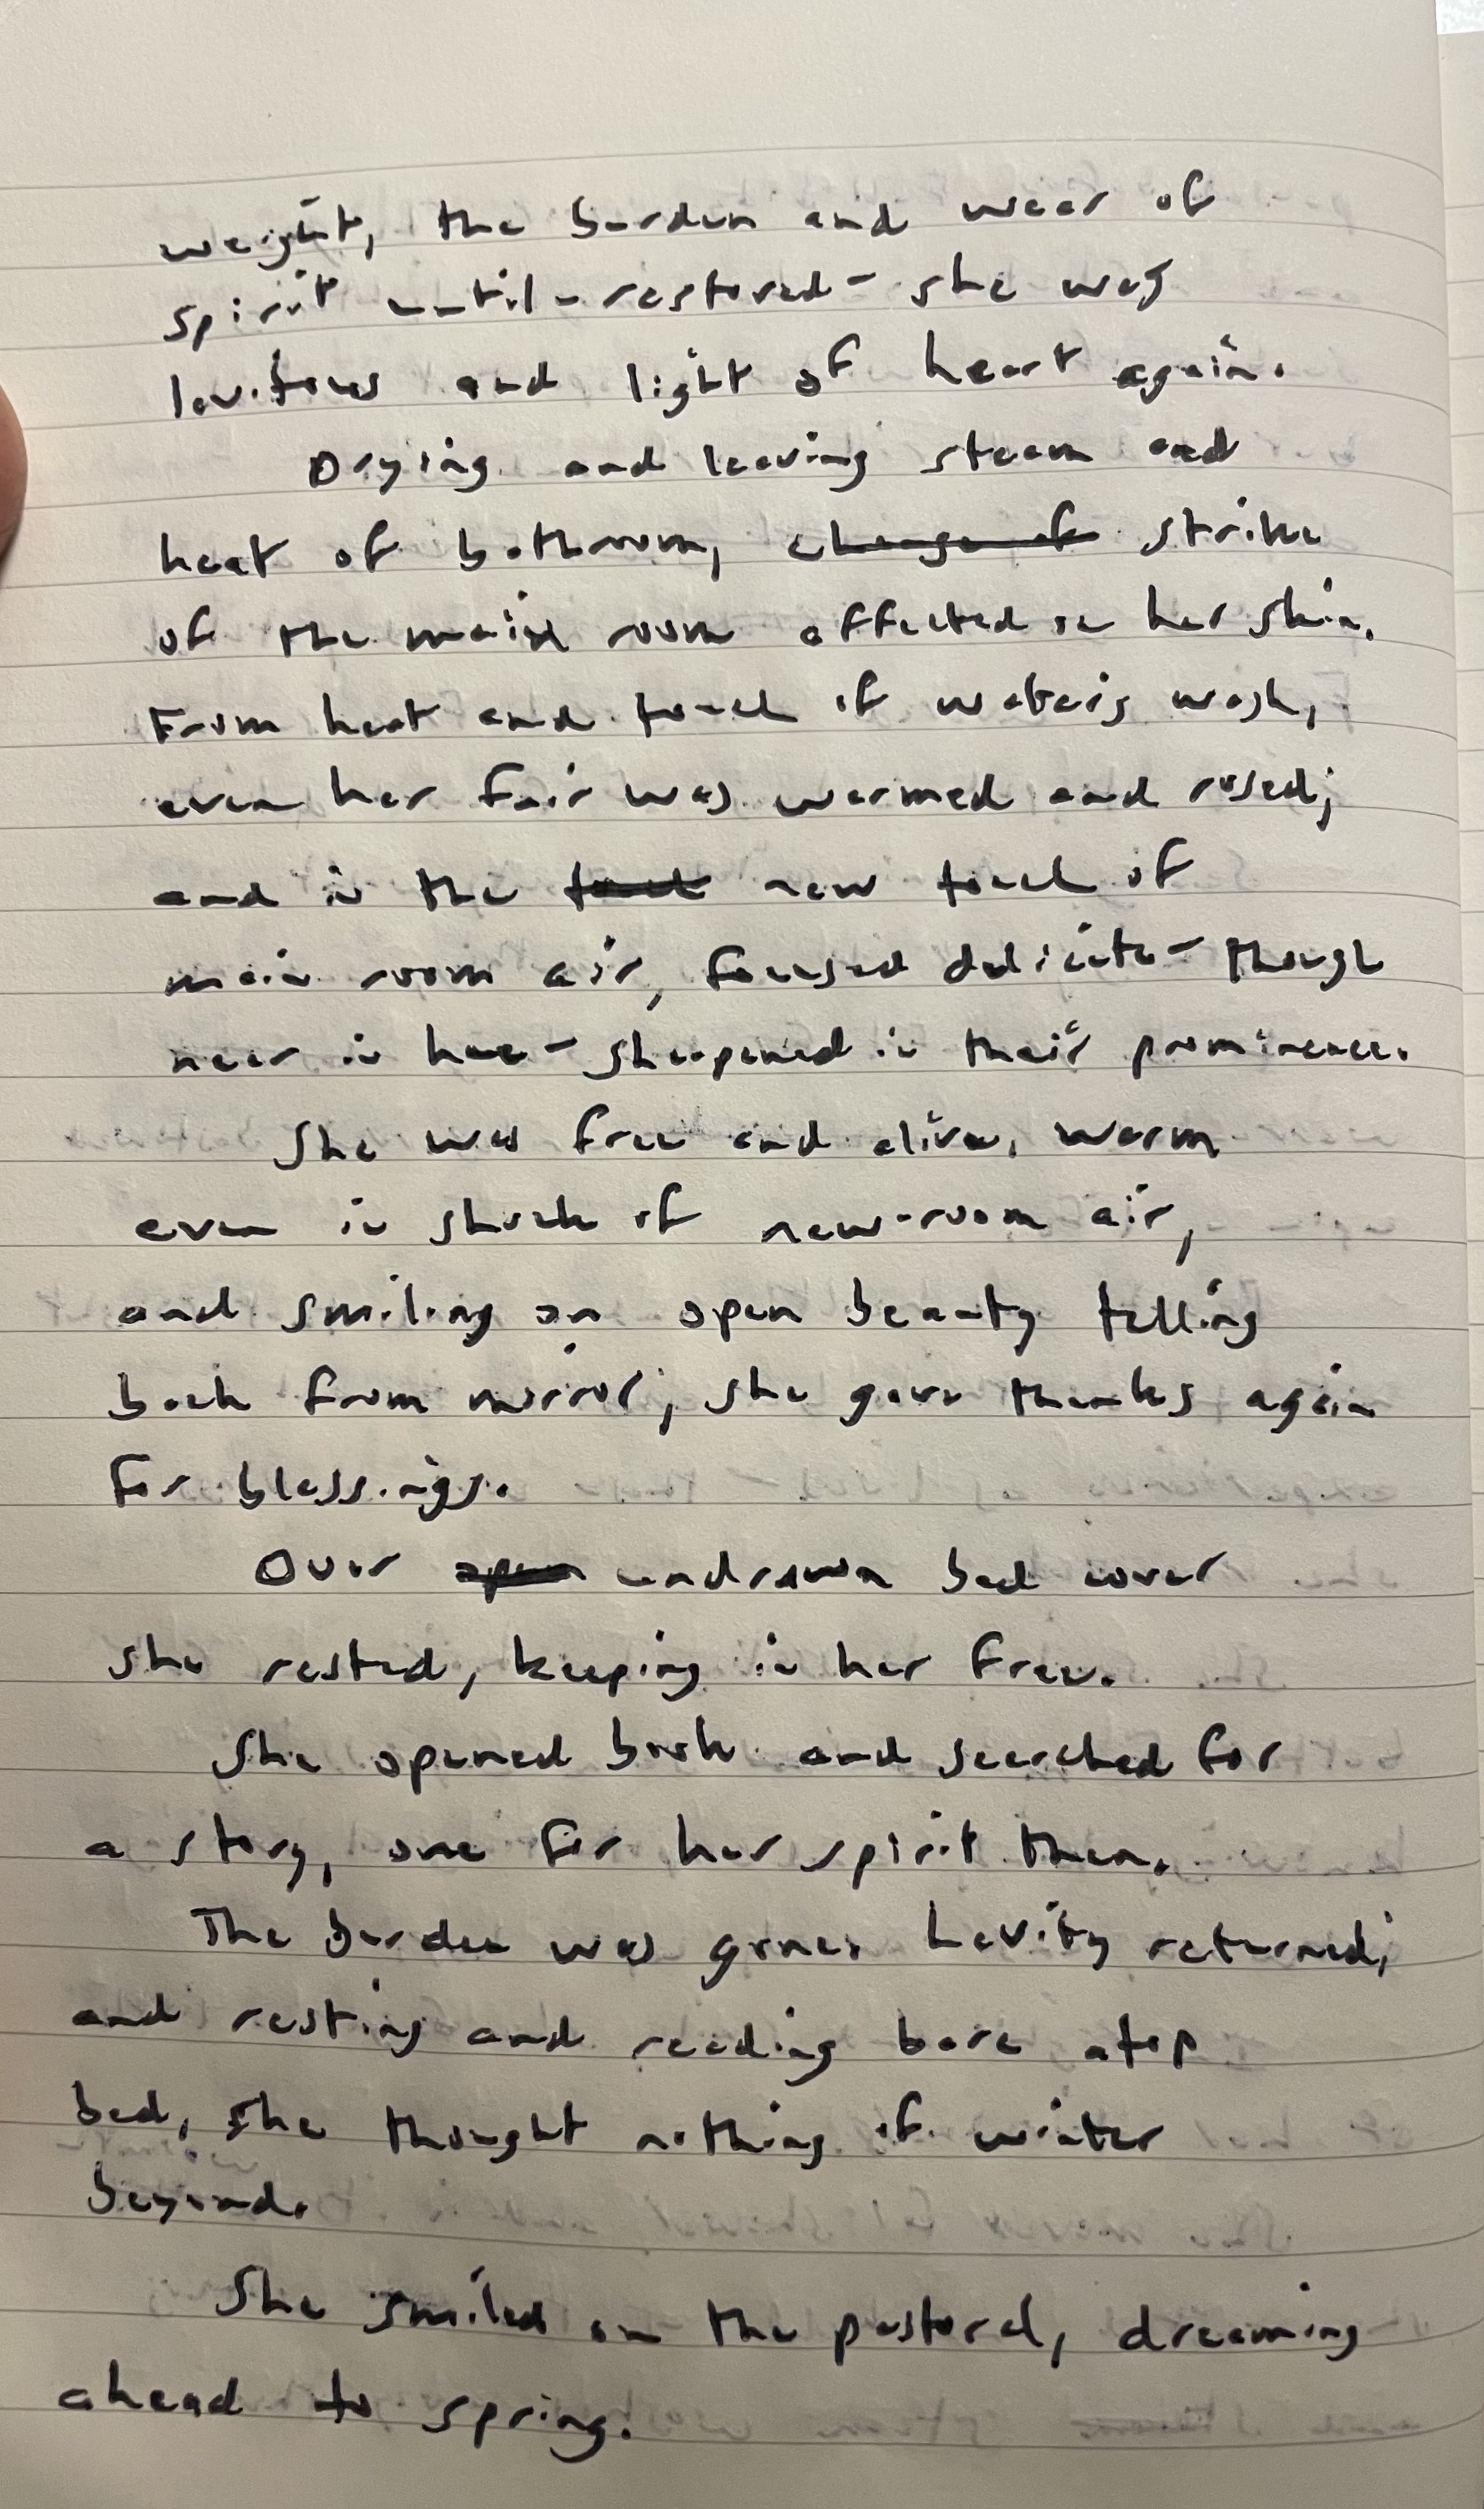 weight, the burden and wear of
spirit until - restored - she was
levitous and light of heart again.
Drying and leaving steam and
heat of bathroom, change of strike
of the main room affected on her skin.
From heat and touch of water's wash,
even her fair was warmed and rosed;
and in the touch new touch of
main room air, focused delicate - though
near in hue - sharpened in their prominence.
She was free and alive, warm
even in shock of new-room air,
and smiling on open beauty telling
back from mirror, she gave thanks again
for blessings.
Over open undrawn bed cover
she rested, keeping in her free.
She opened book and searched for
a story, one for her spirit then.
The burden was gone. Levity returned,
and resting and reading bare atop
bed, she thought nothing of winter
beyond.
She smiled on the pastoral, dreaming
ahead to spring.